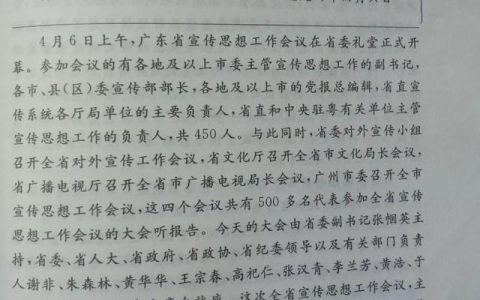 4月6日上午,广东省宣传思想工作会议在省委礼堂正式开
幕。参加会议的有各地及以上市委主管宣传思想工作的副书记,
各市、县(区)委宣传部部长,各地及以上市的党报总编辑,省直宣
传系统各厅局单位的主要负责人,省直和中央驻粤有关单位主管
宣传思想工作的负责人,共450人。与此同时,省委对外宣传小组
召开全省对外宣传工作会议,省文化厅召开全省市文化局长会议,
省广播电视厅召开全省市广播电视局长会议,广州市委召开全市
宣传思想工作会议,这四个会议共有500多名代表参加全省宣传
思想工作会议的大会听报告。今天的大会由省委副书记张帼英主
持,省委、省人大、省政府、省政协、省纪委领导以及有关部门负责
人谢非、朱森林、黄华华、王宗春、高祀仁、张汉青、李兰芳、黄浩、于
这次全省宣传思想工作会议,主